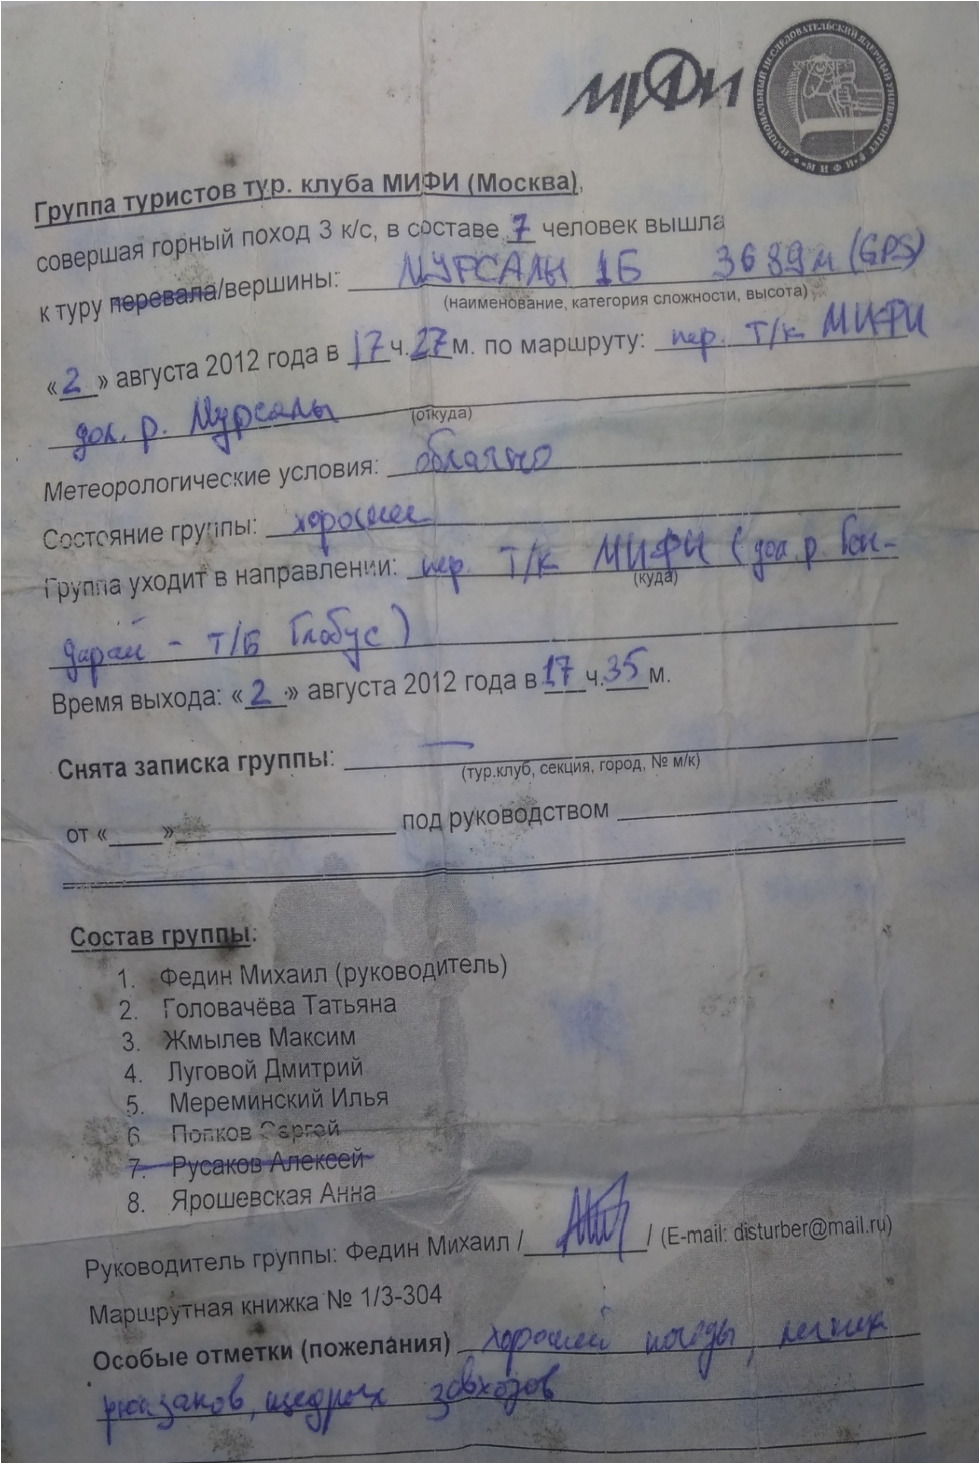 МИФИ
НАЦИОНАЛЬНЫЙ ИССЛЕДОВАТЕЛЬСКИЙ ЯДЕРНЫЙ УНИВЕРСИТЕТ • «МИФИ» •
Группа туристов тур. клуба МИФИ (Москва),
совершая горный поход 3 к/с, в составе 7 человек вышла
к туру перевала/вершины: МУРСАЛЫ 1Б 3689м (GPS)
(наименование, категория сложности, высота)
«2» августа 2012 года в 17 ч. 27 м. по маршруту: пер. Т/к МИФИ
дол. р. Мурсалы
(откуда)
Метеорологические условия: облачно
Состояние группы: хорошее
Группа уходит в направлении: пер. Т/к МИФИ (дол. р. Гон-
(куда)
дарай - Т/Б Глобус)
Время выхода: «2» августа 2012 года в 17 ч. 35 м.
Снята записка группы: —
(тур.клуб, секция, город, № м/к)
от «____»____ под руководством ____
Состав группы:
1. Федин Михаил (руководитель)
2. Головачёва Татьяна
3. Жмылев Максим
4. Луговой Дмитрий
5. Мереминский Илья
6 Попков Сергей
7. Русаков Алексей
8. Ярошевская Анна
Руководитель группы: Федин Михаил /____/ (E-mail: disturber@mail.ru)
Маршрутная книжка № 1/3-304
Особые отметки (пожелания) хорошей погоды, легких
рюкзаков, щедрых завхозов